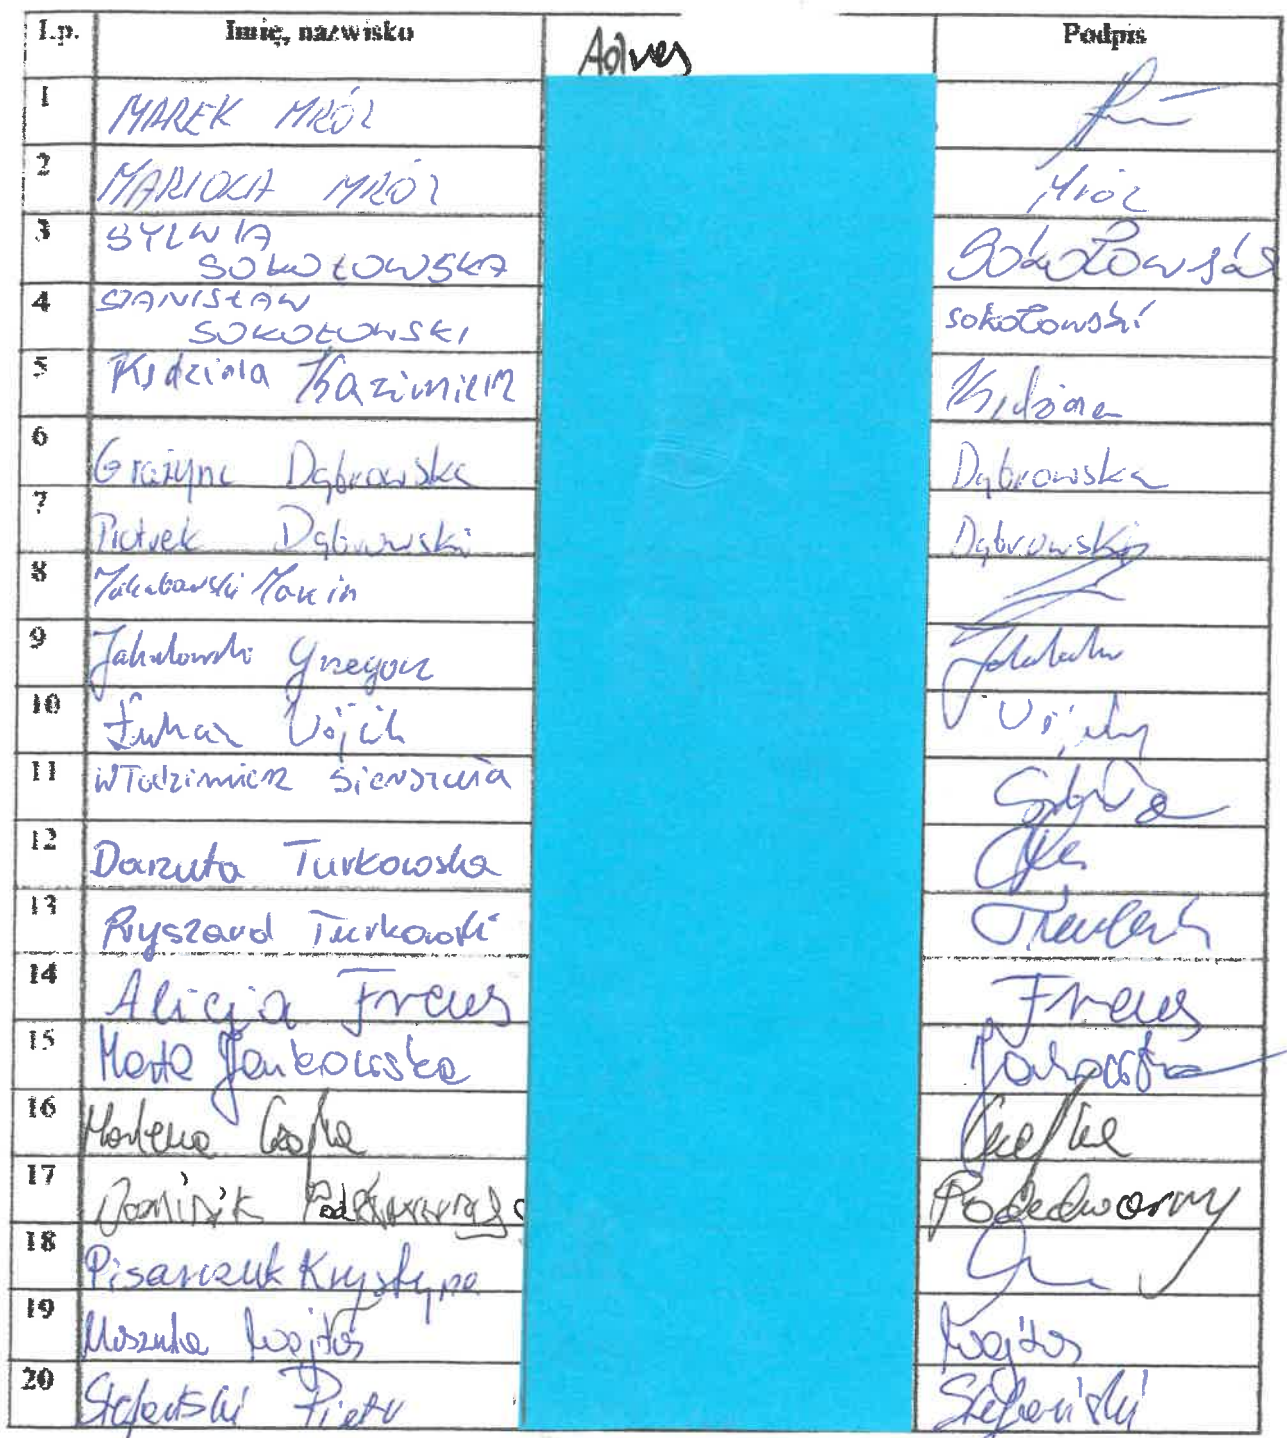 Lp. Imię, nazwisko Adres Podpis
1 MAREK MRÓZ
2 MARIOLA MRÓZ Mróz
3 SYLWIA
SOKOŁOWSKA Sokołowska
4 STANISŁAW
SOKOŁOWSKI sokołowski
5 Kędziora Kazimierz Kędziora
6 Grażyna Dąbrowska Dąbrowska
7 Piotrek Dąbrowski Dąbrowski
8 Jakubowski Marcin
9 Jakubowski Grzegorz
10 Łukasz Wójcik Wójcik
11 Włodzimierz
12 Danuta Turkowska
13 Ryszard Turkowski
14 Alicja Freus Freus
15 Marta Jankowska Jankowska
16 Marlena Czajka Czajka
17 Dominik Podedworny Podedworny
18 Pisarczuk Krystyna
19 Wojtoś Wojtoś
20 Stefański Piotr Stefański